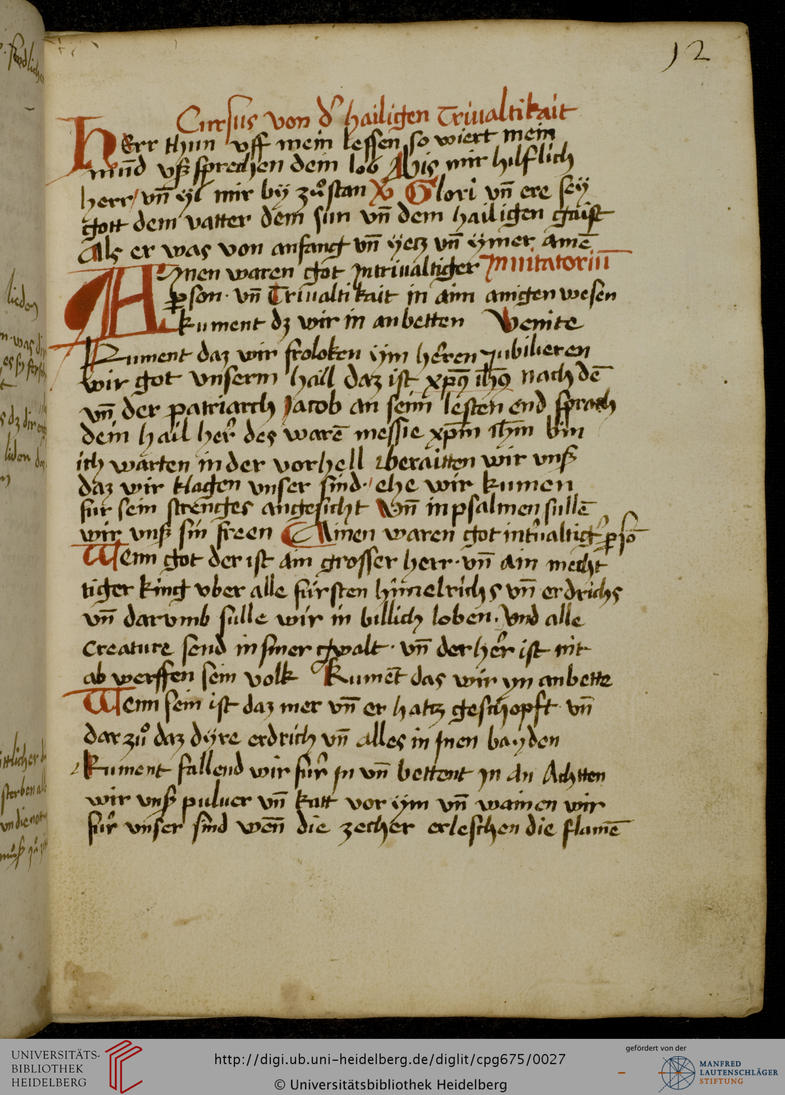 12
Cursus von dˢ hailigen Triualtikait
Herr thun vff mein lessen so wiert mein
mund vß sprechen dein lob Bis mir hilflich
herr vn̄ yl mir by zů stan Glori vn̄ ere sey
gott dem vatter dem sun vn̄ dem hailigen gaist
Als er was von anfang vn̄ yetz vn̄ ymer amē
AInen waren got Intriualtiger Inuitatoriū
pson · vn̄ Triualtikait in aim ainigen wesen
kument dz wir in anbetten Venite
Kument daz wir froloken ym herren Jubilieren
wir got vnserm hail daz ist xp̄o ih̄o nach dē
vn̄ der patriarch Jacob an seim lesten end sprach
dein hail her des warē messie xp̄m ih̄m bin
ich warten in der vorhell beraitten wir vnß
daz wir klagen vnser sind · ehe wir kumen
fur sein strenges angesicht Vn̄ in psalmen sullē
wir vnß sin freen Ainen waren got intiualtig psō
Wenn got der ist ain grosser herr · vn̄ ain mecht
tiger king vber alle fürsten himelrichs vn̄ erdrichs
vn̄ darumb sulle wir in billich loben · Vnd alle
creature send in siner gwalt · vn̄ der her ist nit
ab werffen sein volk Kument das wir yn anbette
Wenn sein ist daz mer vn̄ er hatz geschopft vn̄
dar zů daz dyre erdrich vn̄ alles in Inen bayden
Kument fallend wir für in vn̄ bettent In an Achtten
wir vnß puluer vn̄ katt vor ym vn̄ wainen wir
für vnser sind wen̄ die zecher erleschen die flamē
UNIVERSITÄTS-
BIBLIOTHEK
HEIDELBERG
http://digi.ub.uni-heidelberg.de/diglit/cpg675/0027
© Universitätsbibliothek Heidelberg
gefördert von der
MANFRED
LAUTENSCHLÄGER
STIFTUNG